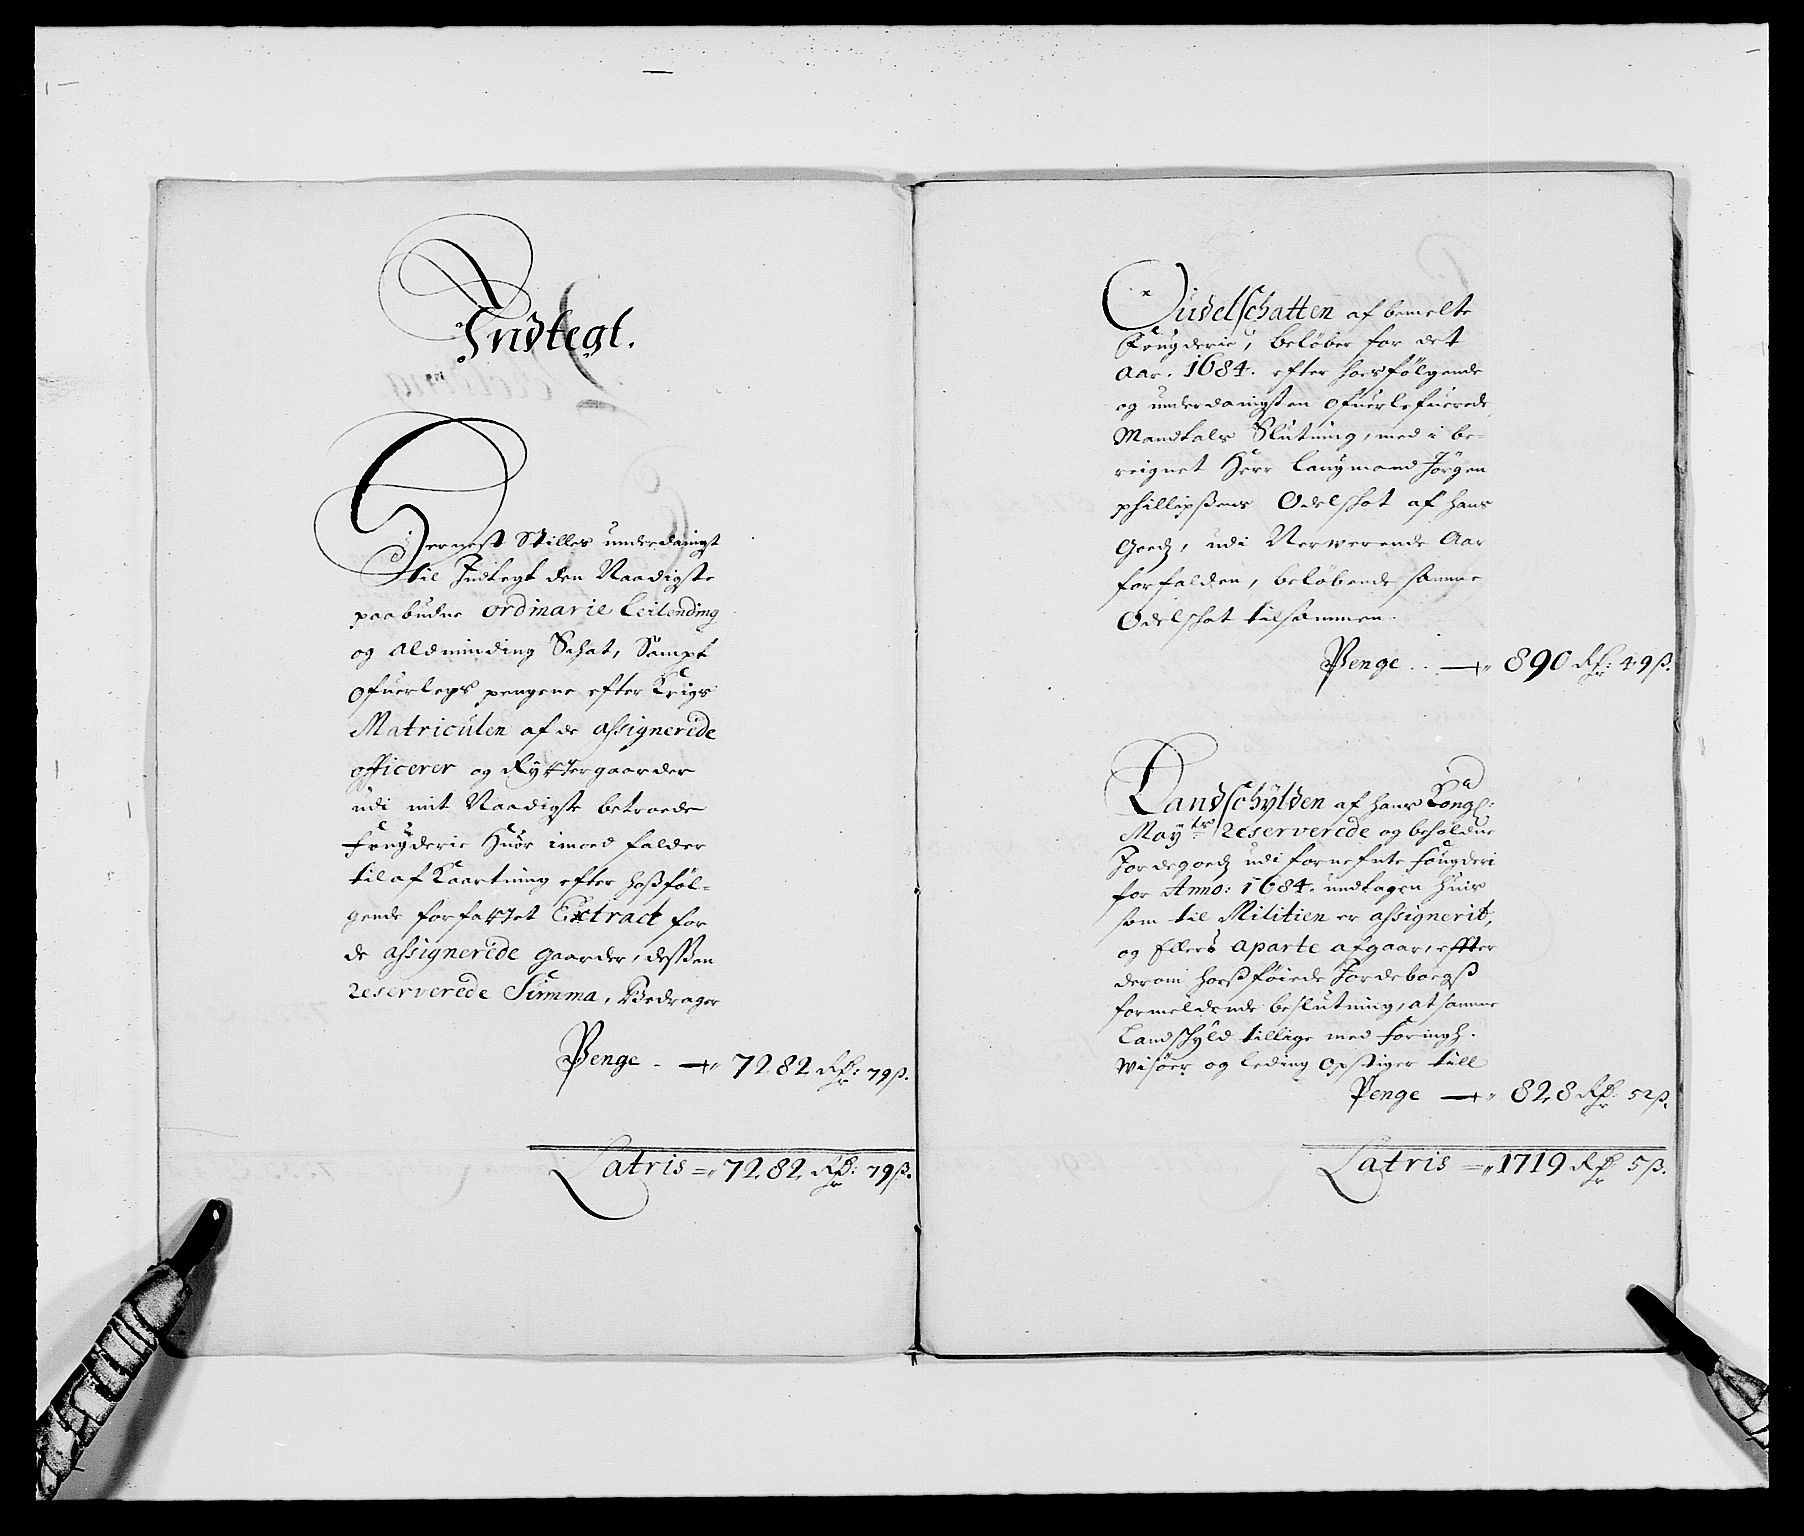 Indtegt.
Dernest Stilles underdanigst
til Indtegt den Naadigste
paabudne ordinarie Leilending
og Aldminding Schat, Sampt
ofuerlegs pengene efter Krigs
Matriculen af de assignerede
officerer og Ryttergaarder
udi mit Naadigste betroede
Fougderie Huor imoed falder
til af Kaartning efter hoßføl-
gende forfattet Extract for
de assignerede gaarder, desßen
reserverede Summa, Bedrager
Penge - 7282 Rdr: 79 ß.
Latris = 7282 Rdr: 79 ß.
Oudelschatten af bemelte
Fougderie, beløber for det
Aar. 1684. efter hosfølgende
og underdanigsten ofuerlefuerede
Mandtals Slutning, med i be-
reignet Herr Laugmand Jörgen
phillipßens Odelshat af hans
Goedz, udi Nerwerende Aar
forfalden, beløbende samme
Odelshat tilsammen.
Penge - 890 Rdr: 49 ß.
Landschylden af hans Kongl:
Mayts reserverede og beholdne
Jordegoedz udi fornefnte Fougderi
for Anno: 1684. undtagen huis
som til Militien er assignerit,
og Ellers aparte afgaar, effter
derom hosßføiede Jordeboegs
formeldende beslutning, at samme
Landschyld tillige med Foringh.
wisöer og leding opstiger till
Penge - 828 Rdr: 52 ß.
Latris = 1719 Rdr: 5 ß.